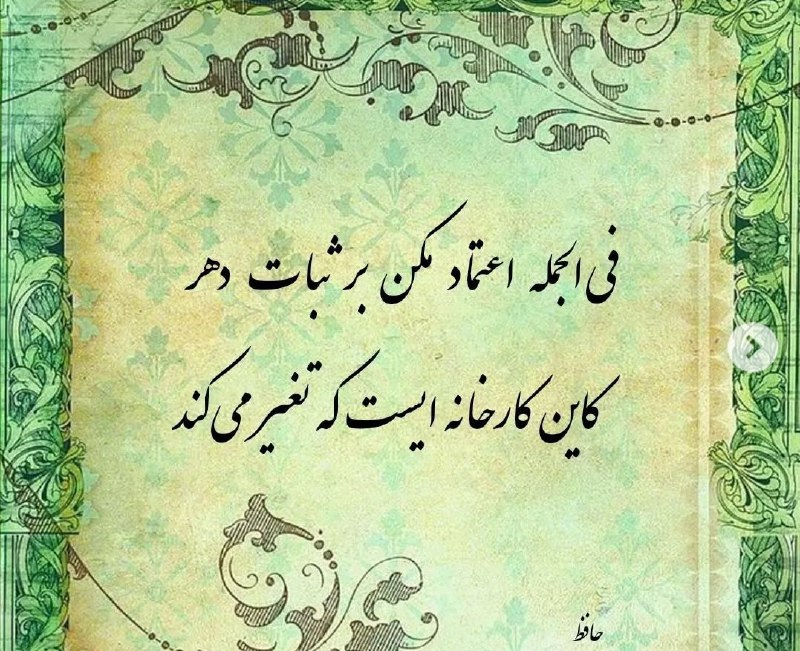 فی‌الجمله اعتماد مکن بر ثبات دهر
کاین کارخانه ایست که تغییر می‌کند
حافظ